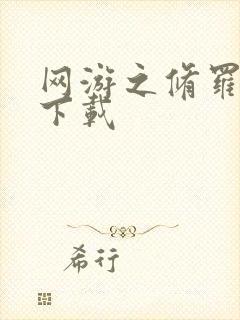 网游之脩羅
下載
希行